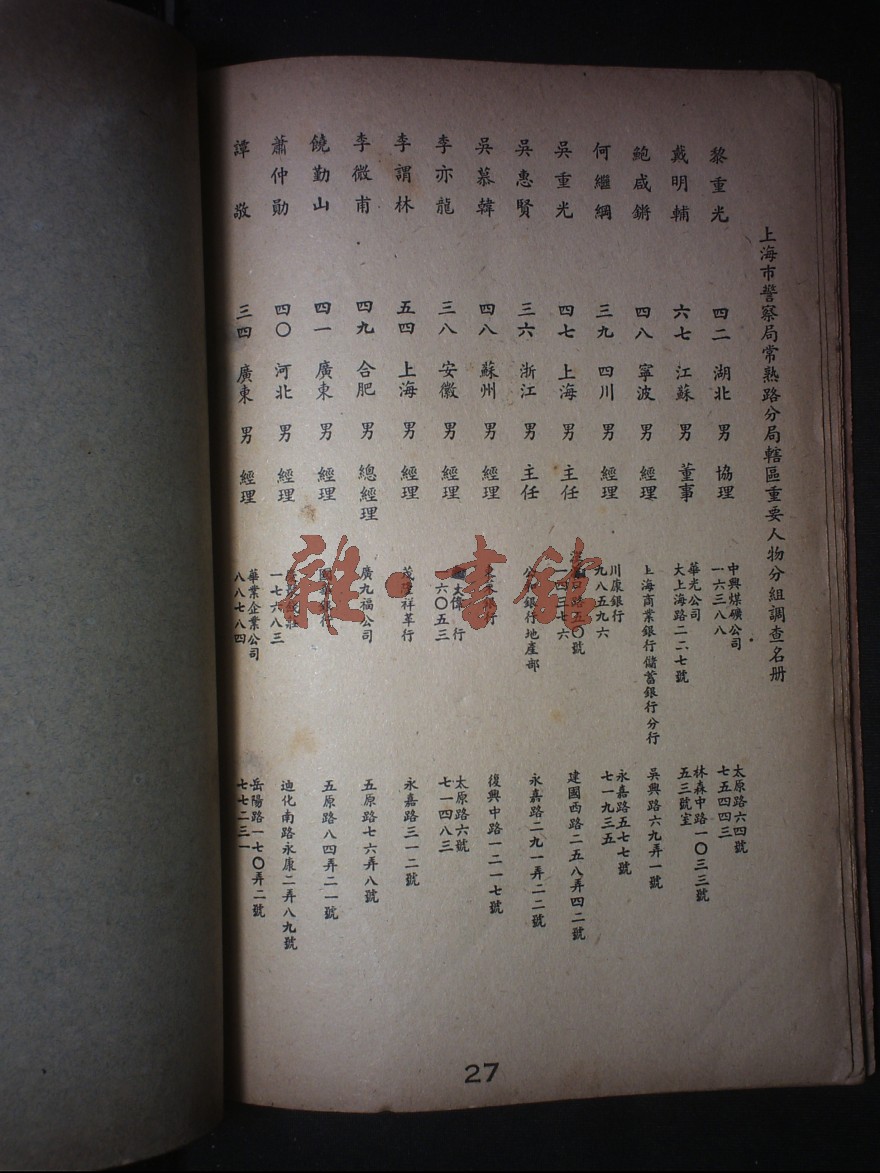 上海市警察局常熟路分局轄區重要人物分組調查名册
黎重光 四二 湖北 男 協理 中興煤礦公司 一六三八八 太原路六四號 七五四四三
戴明輔 六七 江蘇 男 董事 華光公司 大上海路二二七號 林森中路一〇三三號 五三號室
鮑咸鏘 四八 寧波 男 經理 上海商業銀行儲蓄銀行分行 吳興路六九弄一號
何繼綱 三九 四川 男 經理 川康銀行 九八五九六 永嘉路五七七號 七一九三五
吳重光 四七 上海 男 主任 口路五〇號 一四三七六 建國西路二五八弄四二號
吳惠賢 三六 浙江 男 主任 銀行地產部 永嘉路二九一弄二二號
吳慕韓 四八 蘇州 男 經理 行 復興中路一二一七號
李亦龍 三八 安徽 男 經理 大偉行 六〇五三 太原路六號 七一四八三
李謂林 五四 上海 男 經理 茂隆祥革行 永嘉路三一二號
李微甫 四九 合肥 男 總經理 廣九福公司 五原路七六弄八號
饒勤山 四一 廣東 男 經理 國華銀行 五原路八四弄二一號
蕭仲勛 四〇 河北 男 經理 錢莊 一七六八三 迪化南路永康二弄八九號
譚敬 三四 廣東 男 經理 華業企業公司 八八七八四 岳陽路一七〇弄二號 七七二三一
27
雜·書館